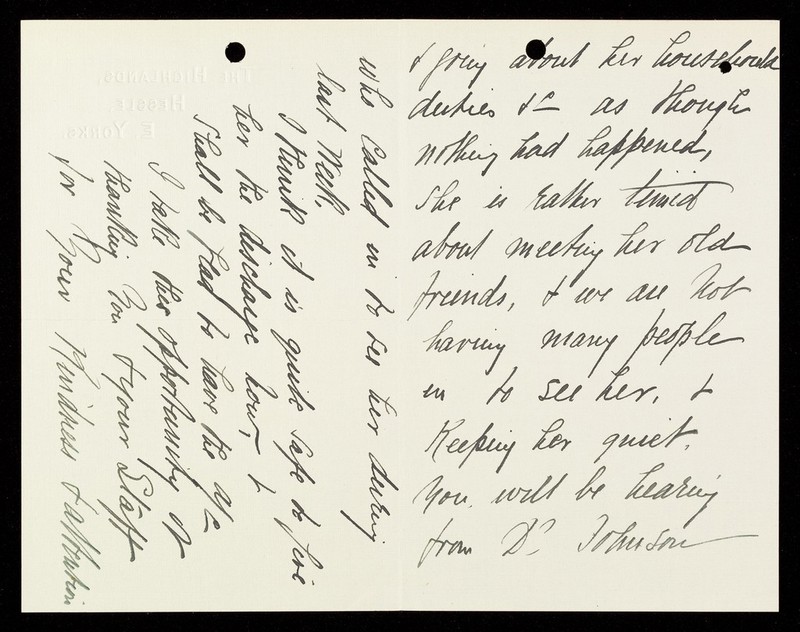 & going about her household
duties &c as though
nothing had happened,
She is rather timid
about meeting her old
friends, & we are not
having many people
in to see her, &
Keeping her quiet.
You will be hearing
from Dr Johnson
who called in to see her during
last Week,
I think it is quite safe to give
her the discharge now, &
Shall be glad to have the a/c
I take this opportunity of
thanking You & your Staff
for Your Kindness & attention
THE HIGHLANDS,
HESSLE,
E. YORKS.